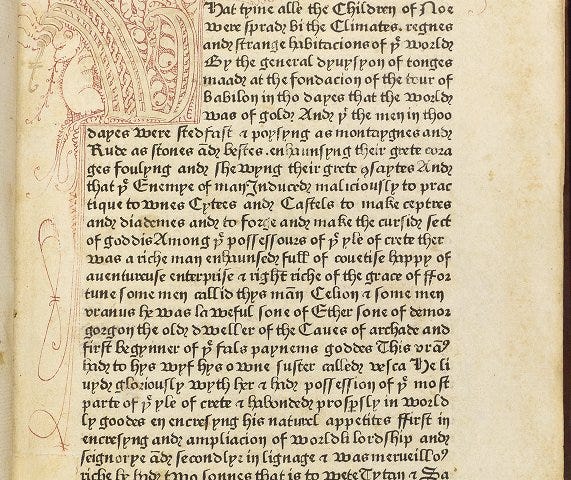 What tyme alle the Children of Noe
were sprad bi the Climates. regnes
and strange habitacions of yͤ world
By the general dyuysyon of tonges
maad at the fondacion of the tour of
babilon in tho dayes that the world
was of gold And yͭ the men in thoo
dayes were stedfast & poysyng as montaygnes and
Rude as stones ād bestes. enhaunsyng their grete cora
ges foulyng and shewyng their grete ꝯsaytes And
that yͤ Enemye of man Induced maliciously to prac
tique townes Cytees and Castels to make ceptres
and diademes and to forge and make the cursid sect
of goddis Among yͤ possessours of yͤ yle of crete ther
was a riche man enhaunsed full of couetise happy of
auentureuse enterprise & right riche of the grace of ffor
tune some men callid thys mān Celion & some men
vranus he was laweful sone of Ether sone of demor
gorgon the old dweller of the Caues of archade and
first begynner of yͤ fals paynems goddes This vranꝰ
had to hys wyf hys owne suster called vesca He li
uyd gloriously wyth her & had possession of yͤ most
parte of yͤ yle of crete & habonded prosꝑsly in world
ly goodes en encresyng his naturel appetites ffirst in
encresyng and ampliacion of worldli lordship and
seignorye ād secondly in lignage & was merueilloꝰ
riche he had two sonnes that is to wete Tytan & Sa